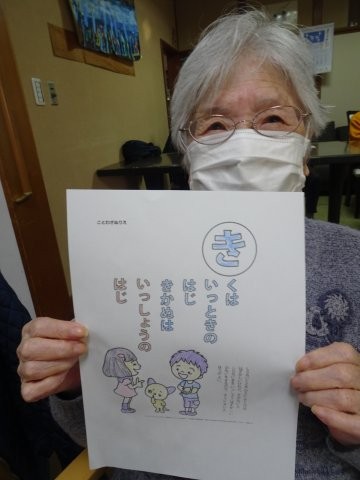 ことわざぬりえ
き
くは
いっときの
はじ
きかぬは
いっしょうの
はじ